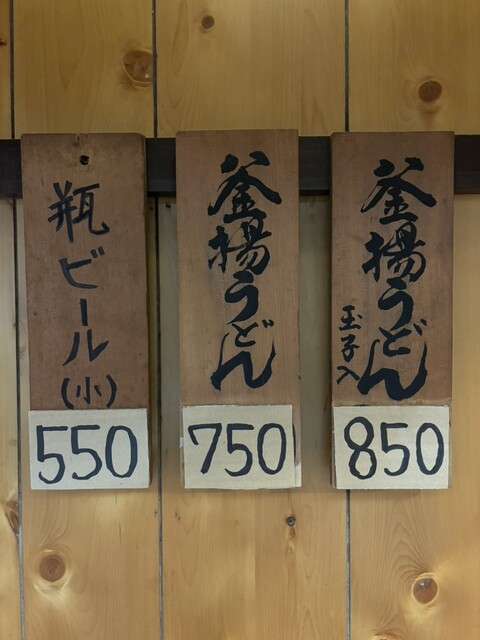 釜揚うどん
玉子入
850
釜揚うどん
750
瓶ビール
(小)
550